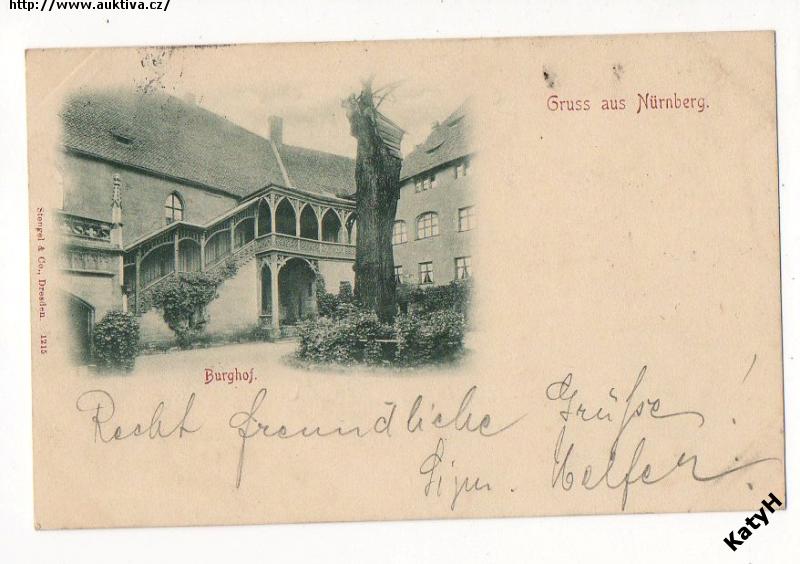 http://www.auktiva.cz/
Gruss aus Nürnberg.
Stengel & Co., Dresden. 1215
Burghof.
Recht freundliche Grüße!
Sigm. Helfer.
KatyH